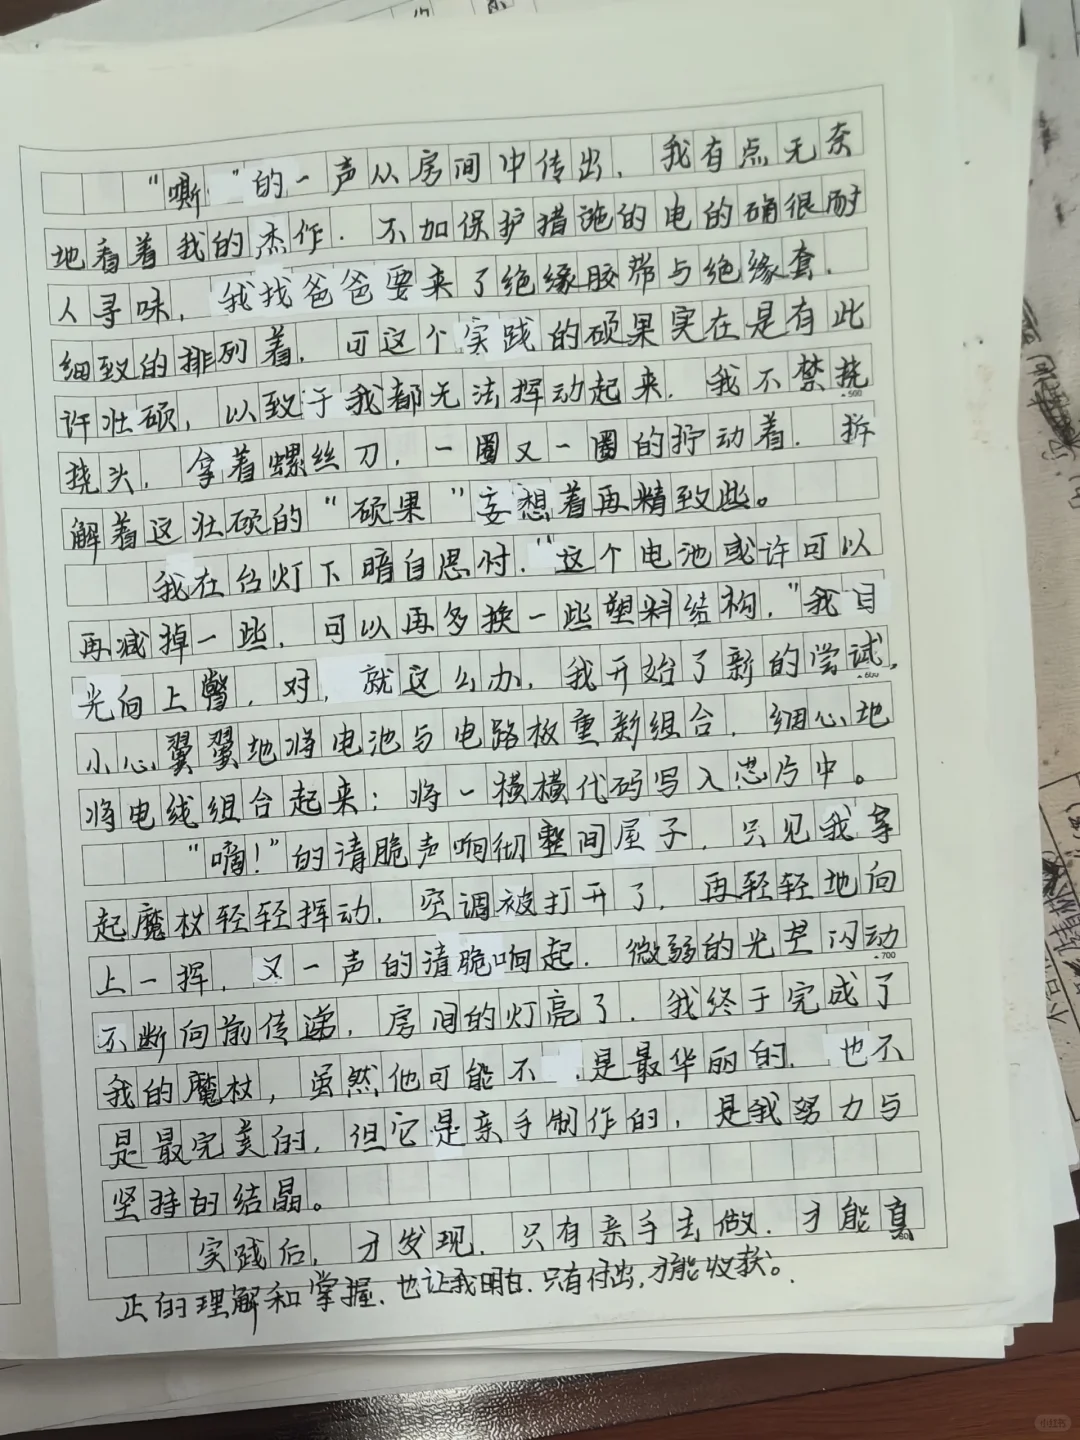 “嘶 ”的一声从房间中传出，我有点无奈
地看着我的杰作．不加保护措施的电的确很耐
人寻味，我找爸爸要来了绝缘胶带与绝缘套．
细致的排列着．可这个实践的硕果实在是有此
许壮硕，以致于我都无法挥动起来．我不禁挠
500
挠头．拿着螺丝刀．一圈又一圈的拧动着．拆
解着这壮硕的“硕果”妄想着再精致些。
我在台灯下暗自思忖．“这个电池或许可以
再减掉一些，可以再多换一些塑料结构．”我目
光向上瞥．对，就这么办，我开始了新的尝试，
600
小心翼翼地将电池与电路板重新组合．细心地
将电线组合起来；将一横横代码写入芯片中。
“嘀！”的清脆声响彻整间屋子．只见我拿
起魔杖轻轻挥动．空调被打开了．再轻轻地向
上一挥，又一声的清脆响起．微弱的光芒闪动
700
不断向前传递，房间的灯亮了．我终于完成了
我的魔杖，虽然他可能不 是最华丽的．也不
是最完美的，但它是亲手制作的，是我努力与
坚持的结晶。
实践后，才发现．只有亲手去做．才能真
正的理解和掌握．也让我明白．只有付出，才能收获。
小红书